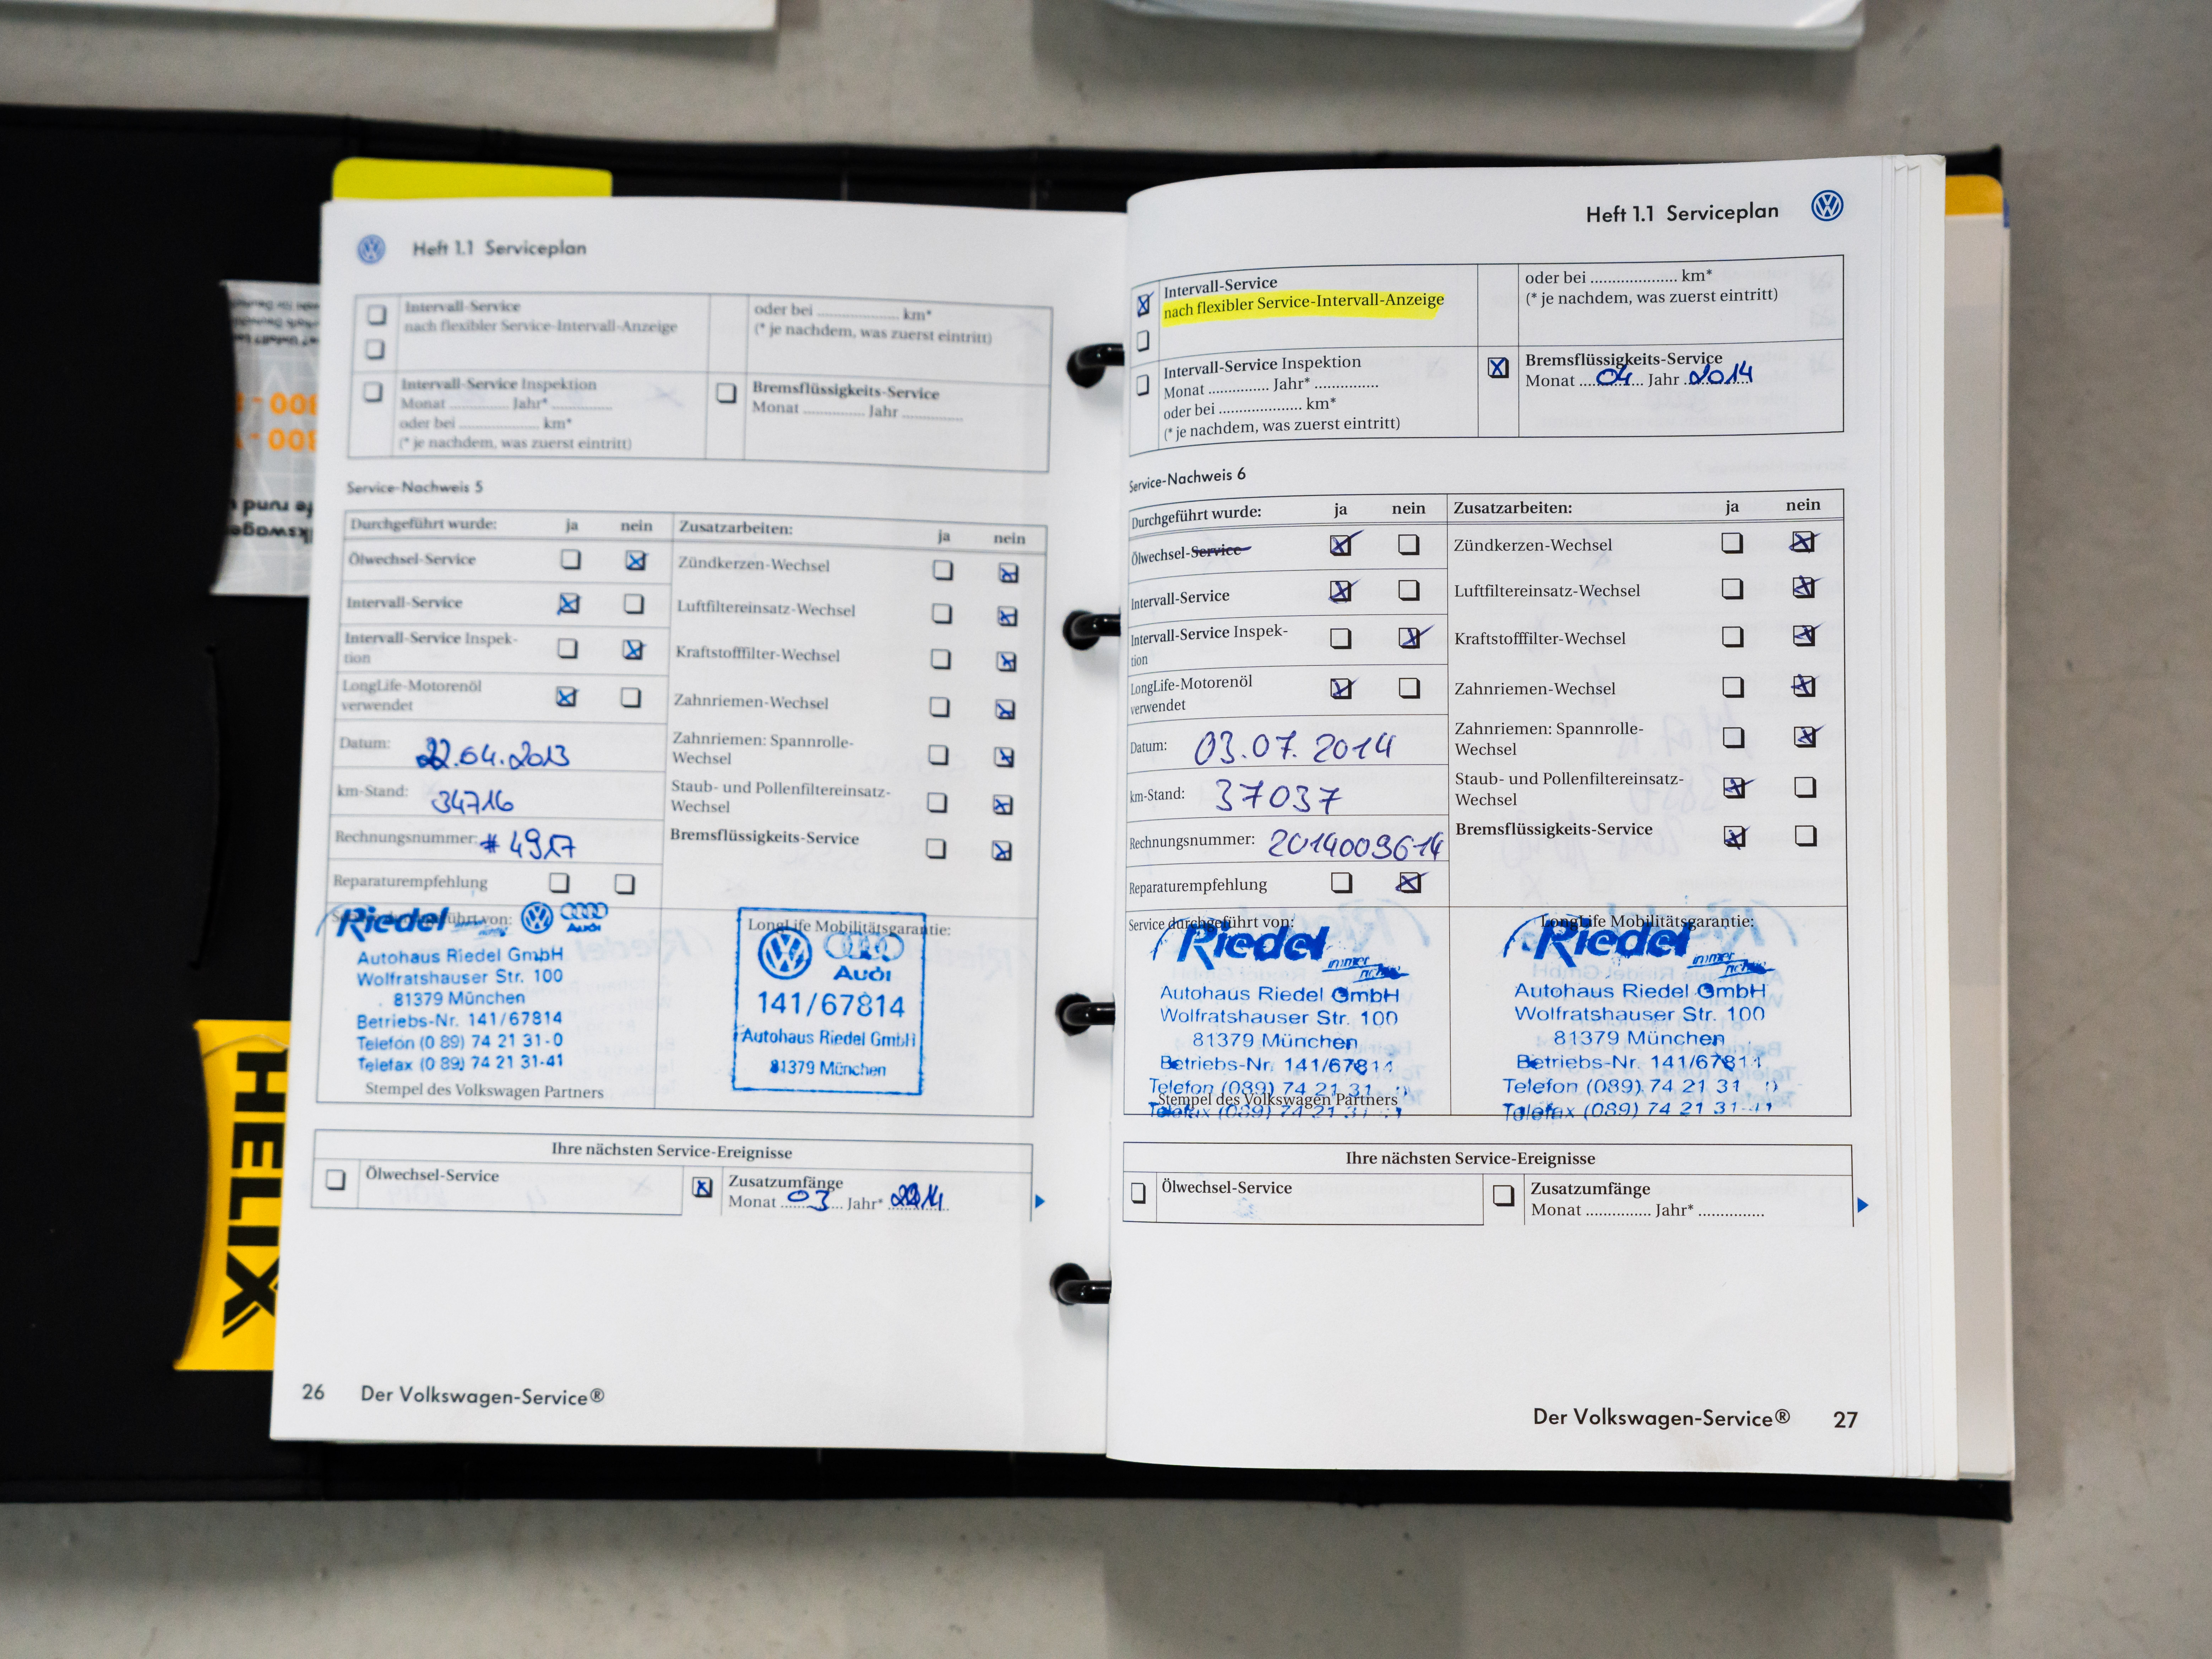 Heft 1.1 Serviceplan
Intervall-Service
nach flexibler Service-Intervall-Anzeige
oder bei .................... km*
(* je nachdem, was zuerst eintritt)
Intervall-Service Inspektion
Monat .............. Jahr* ..............
oder bei .................... km*
(* je nachdem, was zuerst eintritt)
Bremsflüssigkeits-Service
Monat .............. Jahr ..............
Service-Nachweis 5
Durchgeführt wurde: ja nein
Ölwechsel-Service
Intervall-Service
Intervall-Service Inspek-
tion
LongLife-Motorenöl
verwendet
Datum: 22.04.2013
km-Stand: 34716
Rechnungsnummer: # 4917
Reparaturempfehlung
Zusatzarbeiten: ja nein
Zündkerzen-Wechsel
Luftfiltereinsatz-Wechsel
Kraftstofffilter-Wechsel
Zahnriemen-Wechsel
Zahnriemen: Spannrolle-
Wechsel
Staub- und Pollenfiltereinsatz-
Wechsel
Bremsflüssigkeits-Service
Riedel
Audi
Autohaus Riedel GmbH
Wolfratshauser Str. 100
81379 München
Betriebs-Nr. 141/67814
Telefon (0 89) 74 21 31-0
Telefax (0 89) 74 21 31-41
Stempel des Volkswagen Partners
LongLife Mobilitätsgarantie:
Audi
141/67814
Autohaus Riedel GmbH
81379 München
Ihre nächsten Service-Ereignisse
Ölwechsel-Service
Zusatzumfänge
Monat 03 Jahr* 2014
26 Der Volkswagen-Service®
Heft 1.1 Serviceplan
Intervall-Service
nach flexibler Service-Intervall-Anzeige
oder bei .................... km*
(* je nachdem, was zuerst eintritt)
Intervall-Service Inspektion
Monat .............. Jahr* ..............
oder bei .................... km*
(* je nachdem, was zuerst eintritt)
Bremsflüssigkeits-Service
Monat 04 Jahr 2014
Service-Nachweis 6
Durchgeführt wurde: ja nein
Ölwechsel-Service
Intervall-Service
Intervall-Service Inspek-
tion
LongLife-Motorenöl
verwendet
Datum: 03.07.2014
km-Stand: 37037
Rechnungsnummer: 2014009614
Reparaturempfehlung
Zusatzarbeiten: ja nein
Zündkerzen-Wechsel
Luftfiltereinsatz-Wechsel
Kraftstofffilter-Wechsel
Zahnriemen-Wechsel
Zahnriemen: Spannrolle-
Wechsel
Staub- und Pollenfiltereinsatz-
Wechsel
Bremsflüssigkeits-Service
Service durchgeführt von:
Riedel
immer
Autohaus Riedel GmbH
Wolfratshauser Str. 100
81379 München
Betriebs-Nr. 141/67814
Telefon (089) 74 21 31
Stempel des Volkswagen Partners
Telefax (089) 74 21 31
LongLife Mobilitätsgarantie:
Riedel
immer
Autohaus Riedel GmbH
Wolfratshauser Str. 100
81379 München
Betriebs-Nr. 141/67814
Telefon (089) 74 21 31
Telefax (089) 74 21 31
Ihre nächsten Service-Ereignisse
Ölwechsel-Service
Zusatzumfänge
Monat ............... Jahr* ...............
Der Volkswagen-Service® 27
HELIX